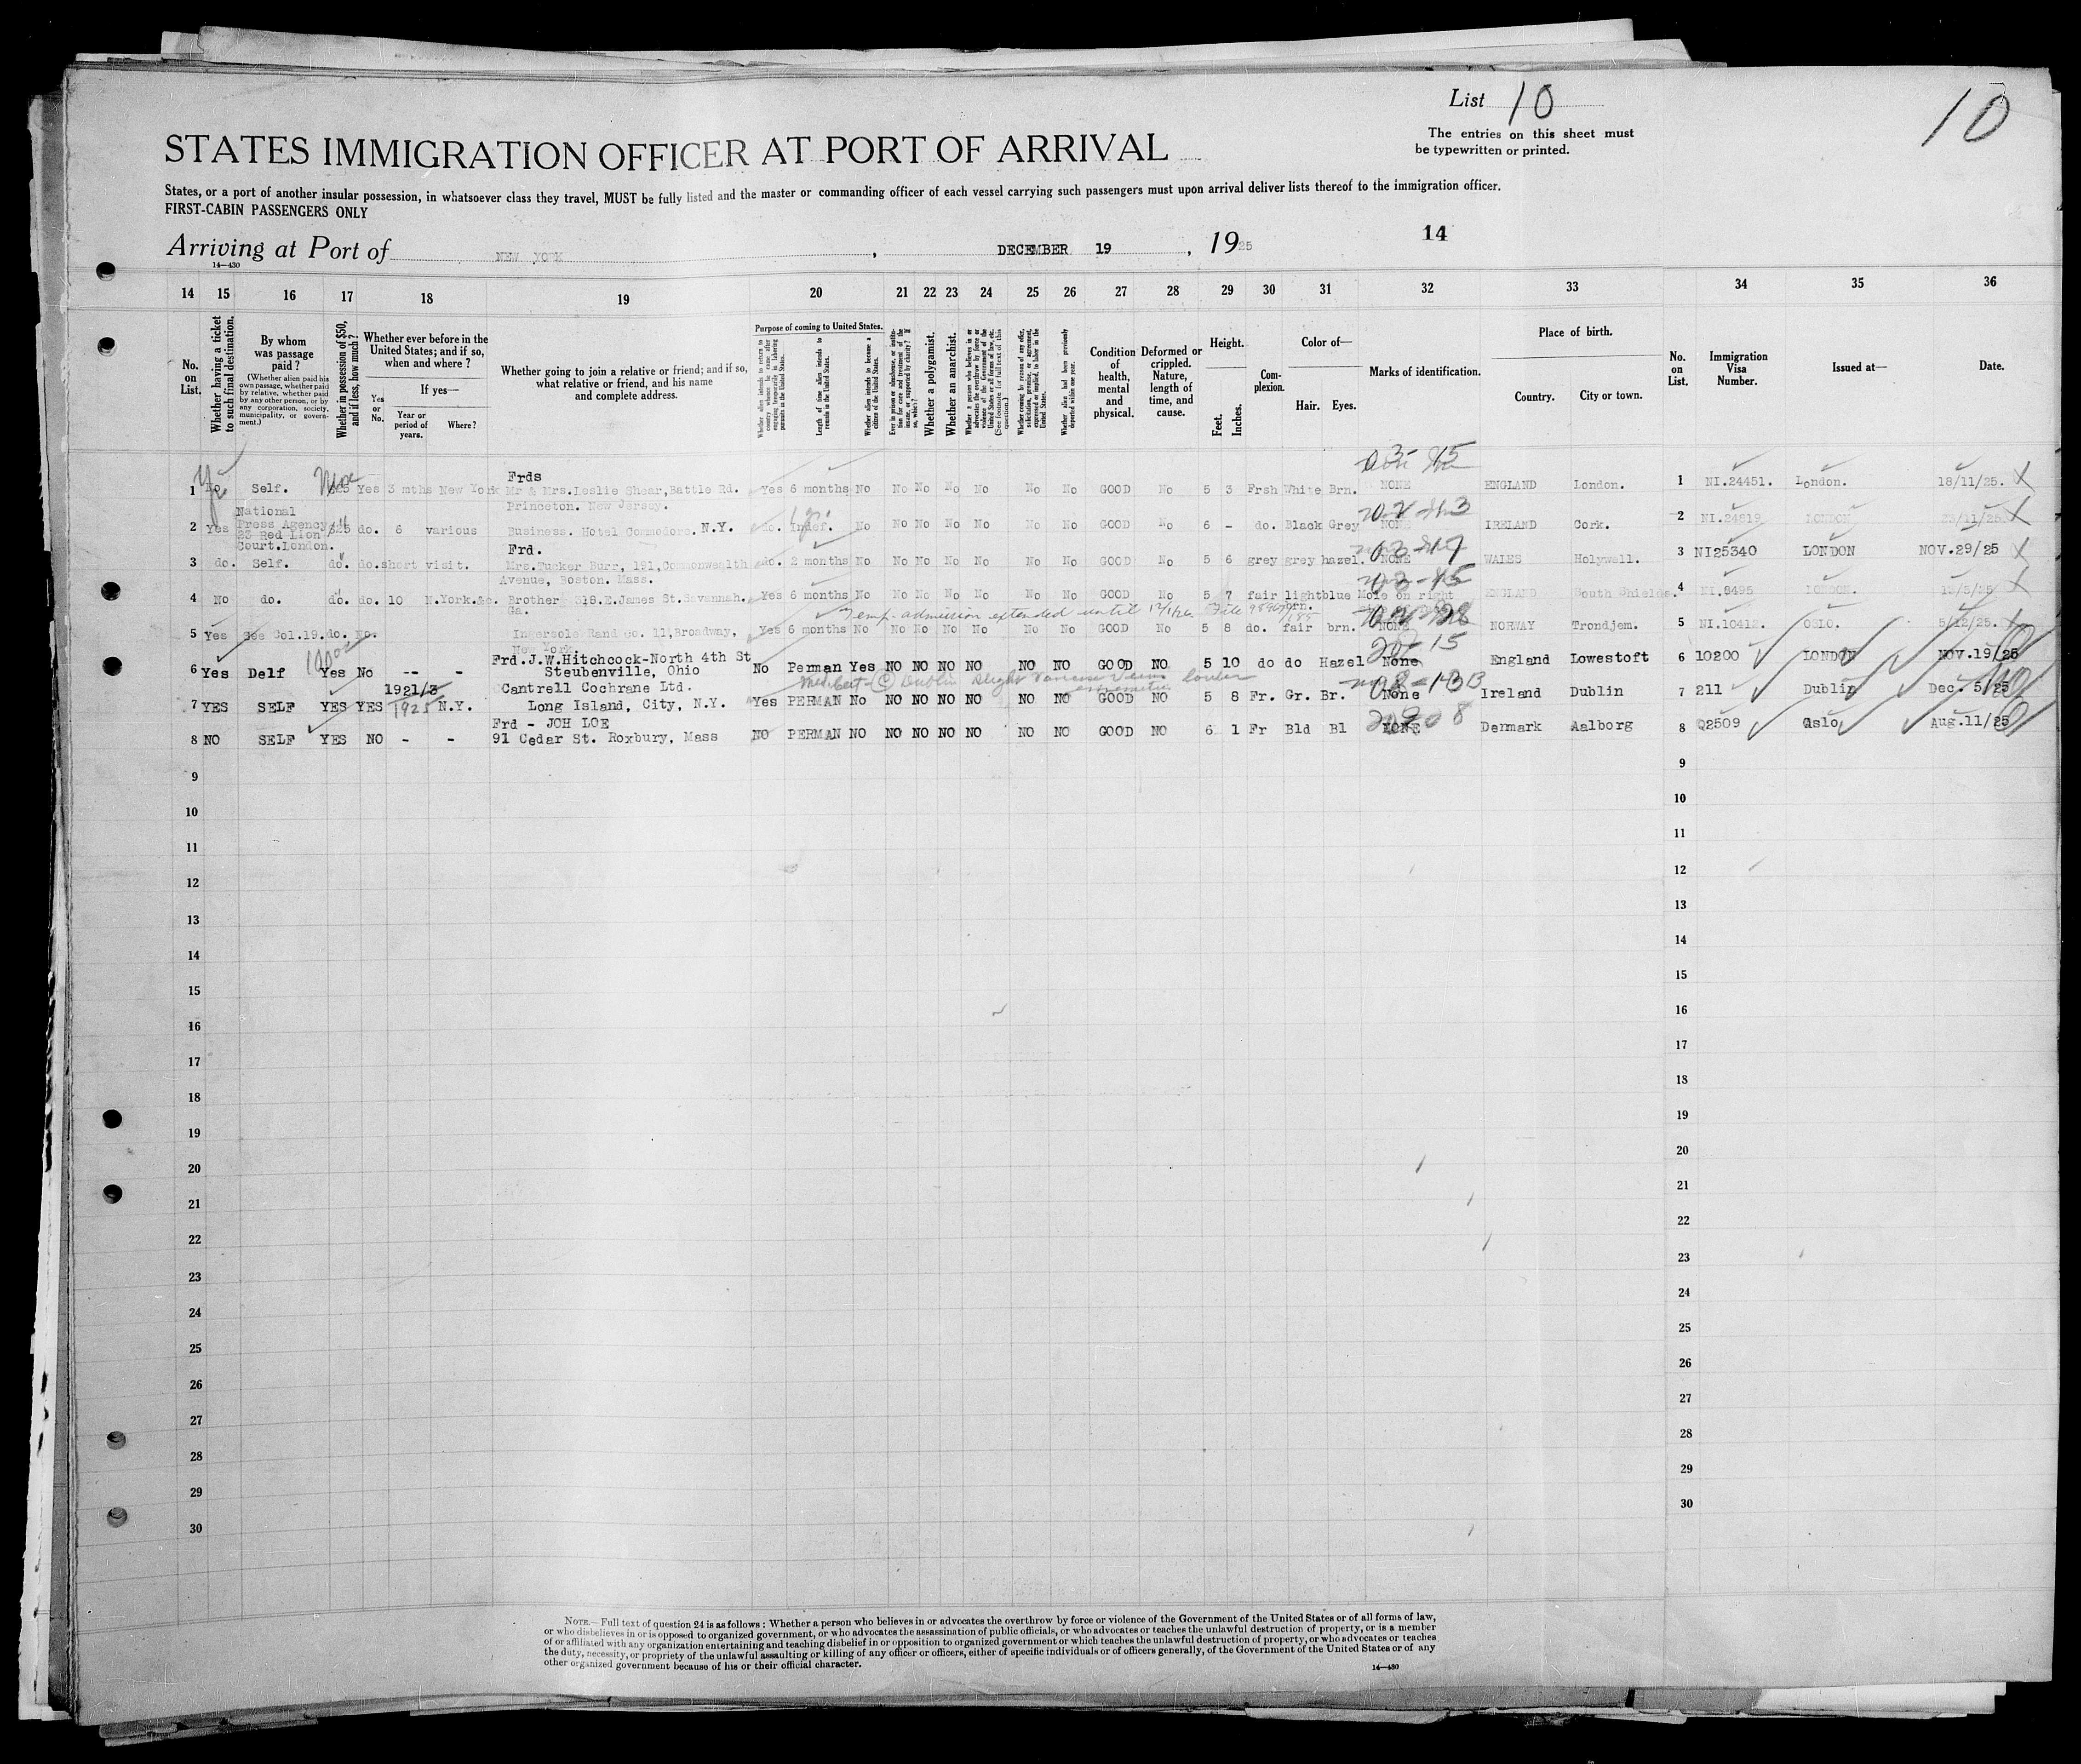 List 10
10
The entries on this sheet must
be typewritten or printed.
STATES IMMIGRATION OFFICER AT PORT OF ARRIVAL
States, or a port of another insular possession, in whatsoever class they travel, MUST be fully listed and the master or commanding officer of each vessel carrying such passengers must upon arrival deliver lists thereof to the immigration officer.
FIRST-CABIN PASSENGERS ONLY
Arriving at Port of NEW YORK, DECEMBER 19, 1925
14
14—430
14 15 16 17 18 19 20 21 22 23 24 25 26 27 28 29 30 31 32 33 34 35 36
No. on List.
Whether having a ticket to such final destination.
By whom was passage paid?
(Whether alien paid his own passage, whether paid by relative, whether paid by any other person, or by any corporation, society, municipality, or government.)
Whether in possession of $50, and if less, how much?
Whether ever before in the United States; and if so, when and where?
If yes—
Yes or No.
Year or period of years.
Where?
Whether going to join a relative or friend; and if so, what relative or friend, and his name and complete address.
Purpose of coming to United States.
Whether alien intends to return to country whence he came after engaging temporarily in laboring pursuits in the United States.
Length of time alien intends to remain in the United States.
Whether alien intends to become a citizen of the United States.
Ever in prison or almshouse, or institution for care and treatment of the insane, or supported by charity? If so, which?
Whether a polygamist.
Whether an anarchist.
Whether a person who believes in or advocates the overthrow by force or violence of the Government of the United States or all forms of law, etc. (See footnote for full text of this question.)
Whether coming by reason of any offer, solicitation, promise, or agreement, expressed or implied, to labor in the United States.
Whether alien had been previously deported within one year.
Condition of health, mental and physical.
Deformed or crippled. Nature, length of time, and cause.
Height.
Feet. Inches.
Complexion.
Color of—
Hair. Eyes.
Marks of identification.
Place of birth.
Country. City or town.
No. on List.
Immigration Visa Number.
Issued at—
Date.
Frds
1 No Self. Yes 3 mths New York Mr & Mrs.Leslie Shear,Battle Rd. Yes 6 months No No No No No No No GOOD No 5 3 Frsh White Brn. NONE ENGLAND London. 1 NI.24451. London. 18/11/25.
Princeton. New Jersay.
National
2 Yes Press Agency $25 do. 6 various Business. Hotel Commodore. N.Y. do. Indef. No No No No No No No GOOD No 6 - do. Black Grey NONE IRELAND Cork. 2 NI.24819 LONDON
23 Red Lion
Court.London.
Frd.
3 do. Self. do. do. short visit. Mrs.Tucker Burr, 191,Commonwealth do. 2 months No No No No No No No GOOD No 5 6 grey grey hazel. NONE WALES Holywell. 3 NI25340 LONDON NOV.29/25
Avenue, Boston. Mass.
4 No do. do. do. 10 N.York.&c. Brother 318.E.James St.Savannah. Yes 6 months No No No No No No No GOOD No 5 7 fair light blue Mole on right ENGLAND South Shields. 4 NI.8495 LONDON.
Ga.
Temp. admission extended until 12/1/26 File
5 Yes See Col.19. do. No. Ingersole Rand Co. 11,Broadway, Yes 6 months No No No No No No No GOOD No 5 8 do. fair brn. NONE NORWAY Trondjem. 5 NI.10412. OSLO. 5/12/25.
New York.
Frd.J.W.Hitchcock-North 4th St
6 Yes Delf Yes No -- - Steubenville, Ohio No Perman Yes NO NO NO NO NO NO GOOD NO 5 10 do do Hazel None England Lowestoft 6 10200 LONDON NOV.19/25
1921/3 Cantrell Cochrane Ltd.
7 YES SELF YES YES 1925 N.Y. Long Island, City, N.Y. Yes PERMAN No NO NO NO NO NO NO GOOD NO 5 8 Fr. Gr. Br. None Ireland Dublin 7 211 Dublin Dec. 5/25
Frd - JOH LOE
8 NO SELF YES NO - - 91 Cedar St. Roxbury, Mass NO PERMAN NO NO NO NO NO NO NO GOOD NO 6 1 Fr Bld Bl NONE Denmark Aalborg 8 Q2509 Oslo Aug.11/25
9 9
10 10
11 11
12 12
13 13
14 14
15 15
16 16
17 17
18 18
19 19
20 20
21 21
22 22
23 23
24 24
25 25
26 26
27 27
28 28
29 29
30 30
NOTE.—Full text of question 24 is as follows: Whether a person who believes in or advocates the overthrow by force or violence of the Government of the United States or of all forms of law,
or who disbelieves in or is opposed to organized government, or who advocates the assassination of public officials, or who advocates or teaches the unlawful destruction of property, or is a member
of or affiliated with any organization entertaining and teaching disbelief in or opposition to organized government or which teaches the unlawful destruction of property, or who advocates or teaches
the duty, necessity, or propriety of the unlawful assaulting or killing of any officer or officers, either of specific individuals or of officers generally, of the Government of the United States or of any
other organized government because of his or their official character.
14—430